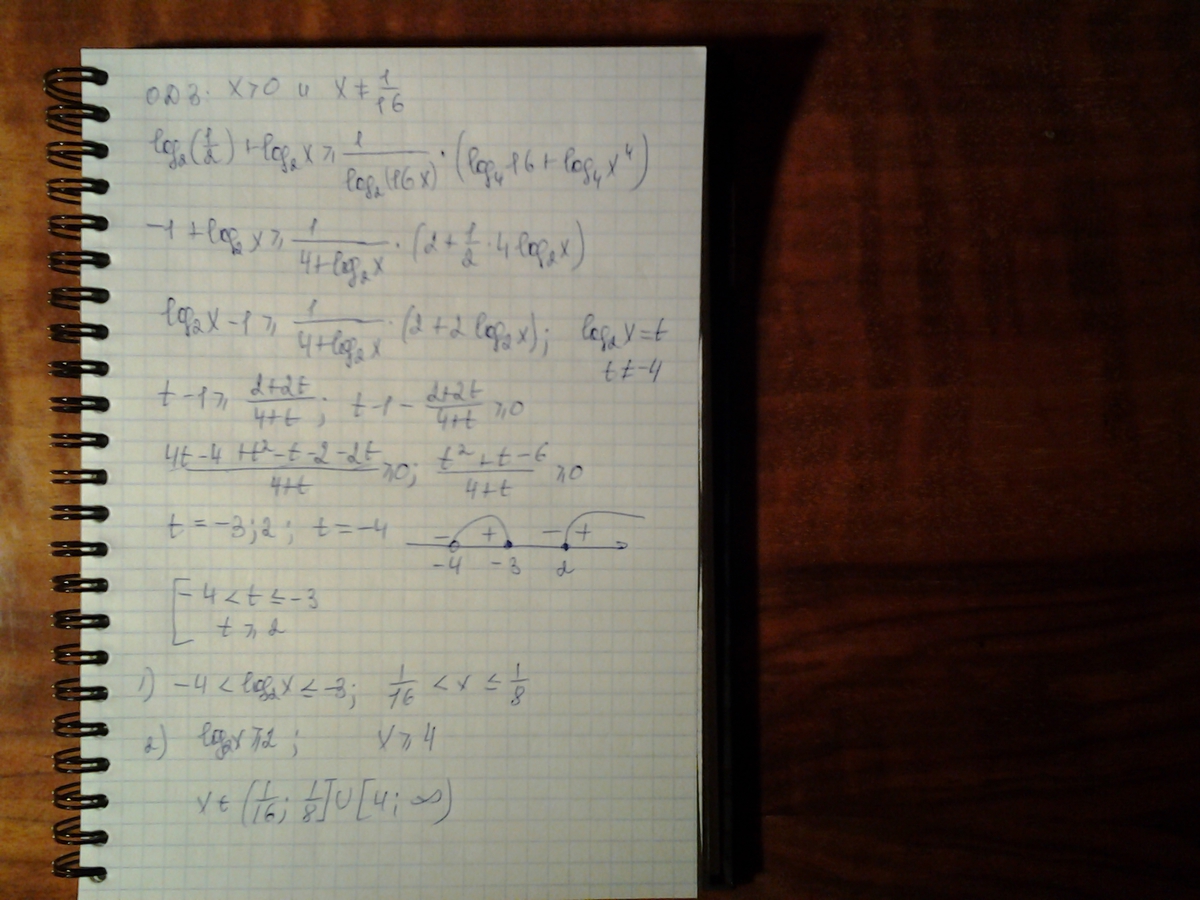 ОДЗ: x>0 и x≠1/16
log₂(1/2)+log₂x ≥ 1/log₂(16x) · (log₄16+log₄x⁴)
-1+log₂x ≥ 1/(4+log₂x) · (2+1/2·4log₂x)
log₂x-1 ≥ 1/(4+log₂x) · (2+2log₂x); log₂x=t
t≠-4
t-1 ≥ (2+2t)/(4+t); t-1-(2+2t)/(4+t) ≥0
(4t-4+t²-t-2-2t)/(4+t) ≥0; (t²+t-6)/(4+t) ≥0
t=-3;2; t=-4 - + - +
-4 -3 2
[-4<t≤-3
t≥2
1) -4<log₂x≤-3; 1/16<x≤1/8
2) log₂x≥2; x≥4
x∈(1/16; 1/8]∪[4; ∞)